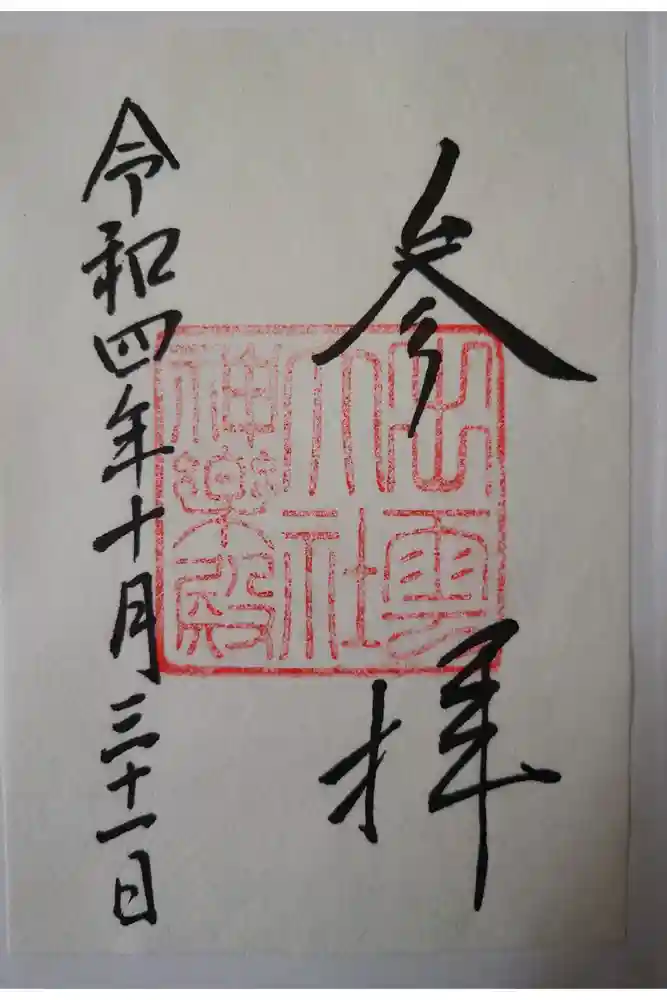 参拝
出雲
大社
神楽殿
令和四年十月三十一日